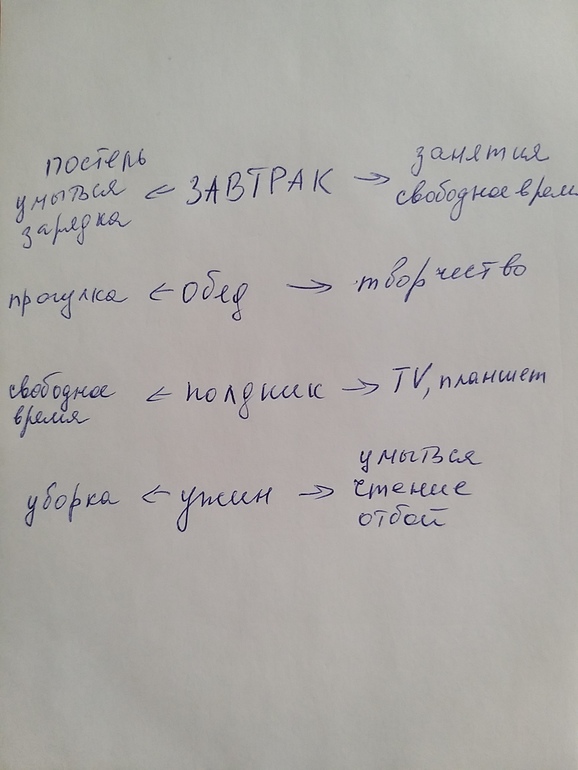 постель
умыться
зарядка
← ЗАВТРАК →
занятия
свободное врем
прогулка ← обед → творчество
свободное
время
← полдник → TV, планшет
уборка ← ужин →
умыться
чтение
отбой